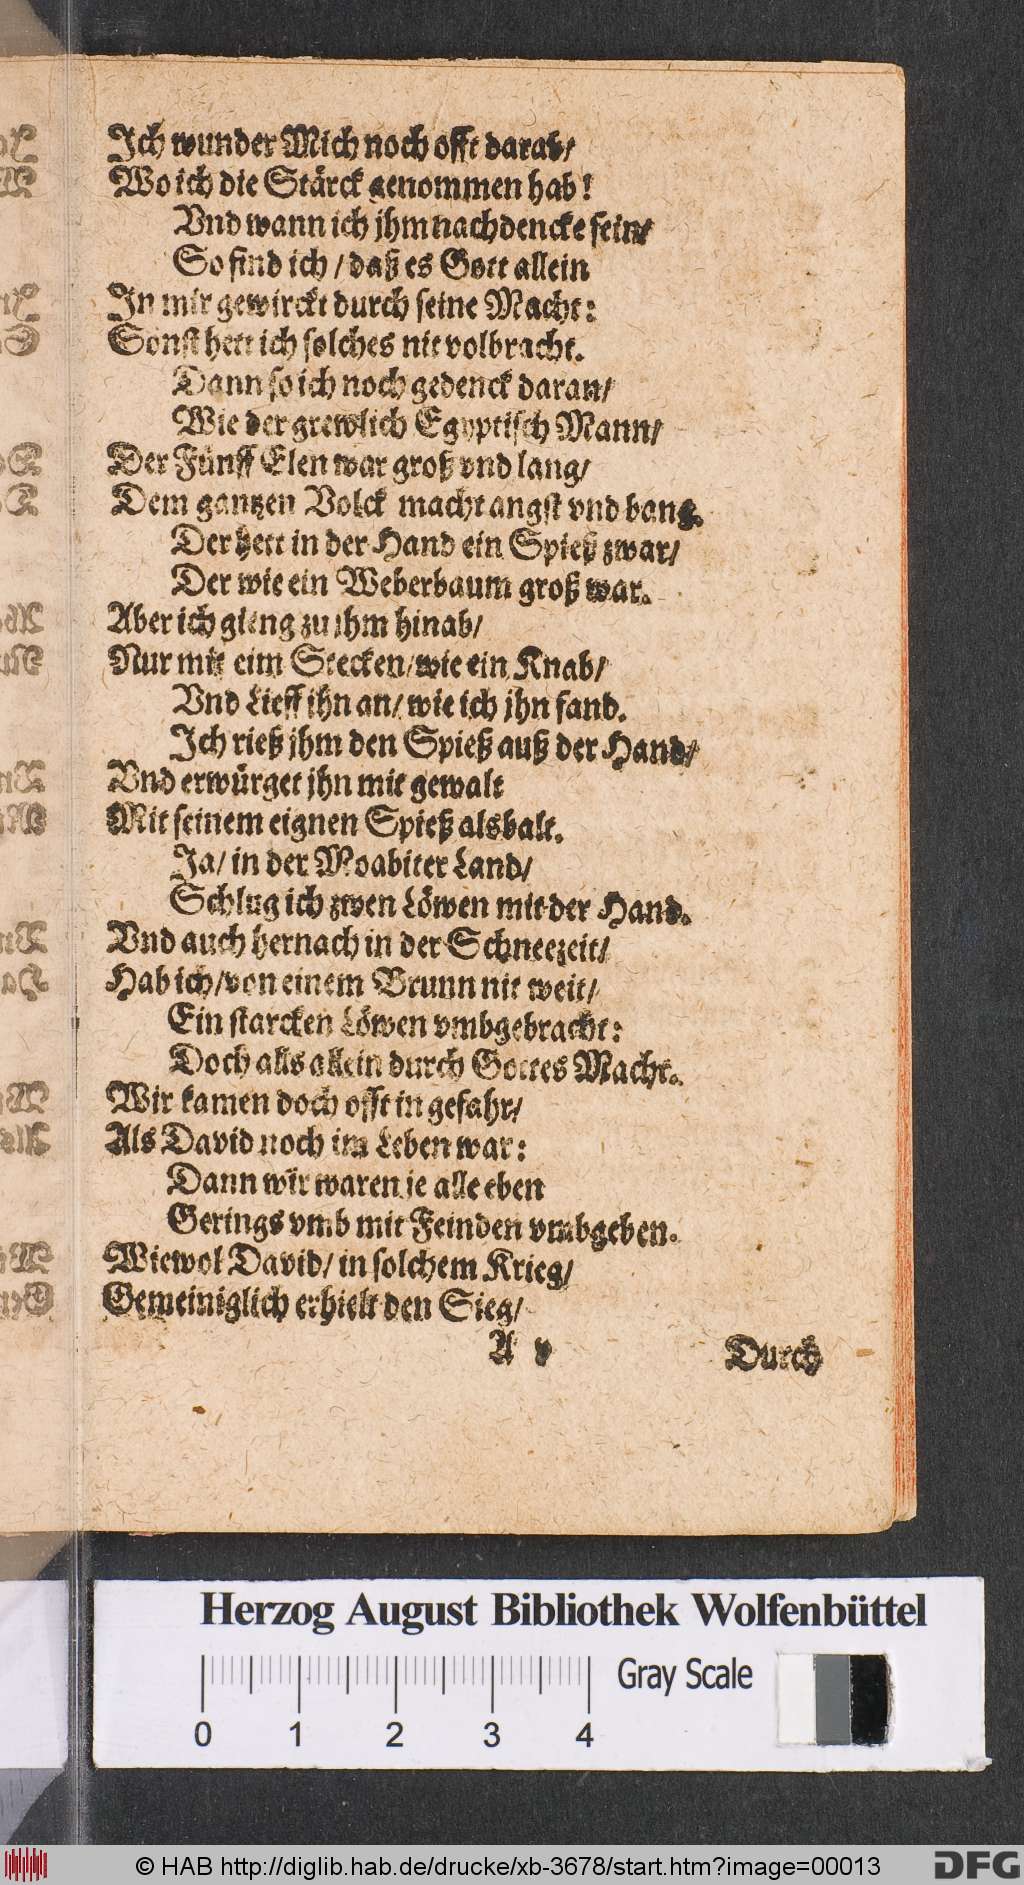 Ich wunder Mich noch offt darab/
Wo ich die Stärck genommen hab!
Vnd wann ich jhm nachdencke fein/
So find ich / daß es Gott allein
In mir gewirckt durch seine Macht:
Sonst hett ich solches nit volbracht.
Dann so ich noch gedenck daran/
Wie der grewlich Egyptisch Mann/
Der Fünff Elen war groß vnd lang/
Dem gantzen Volck macht angst vnd bang.
Der hett in der Hand ein Spieß zwar/
Der wie ein Weberbaum groß war.
Aber ich gieng zu jhm hinab/
Nur mit eim Stecken/wie ein Knab/
Vnd Lieff ihn an/ wie ich jhn fand.
Ich rieß jhm den Spieß auß der Hand/
Vnd erwürget jhn mit gewalt
Mit seinem eignen Spieß alsbalt.
Ja/ in der Moabiter Land/
Schlug ich zwen Löwen mit der Hand.
Vnd auch hernach in der Schneezeit/
Hab ich/von einem Brunn nit weit/
Ein starcken Löwen vmbgebracht:
Doch alls allein durch Gottes Macht.
Wir kamen doch offt in gefahr/
Als David noch im Leben war:
Dann wir waren je alle eben
Gerings vmb mit Feinden vmbgeben.
Wiewol David/ in solchem Krieg/
Gemeiniglich erhielt den Sieg/
A v Durch
Herzog August Bibliothek Wolfenbüttel
Gray Scale
0 1 2 3 4
© HAB http://diglib.hab.de/drucke/xb-3678/start.htm?image=00013
DFG